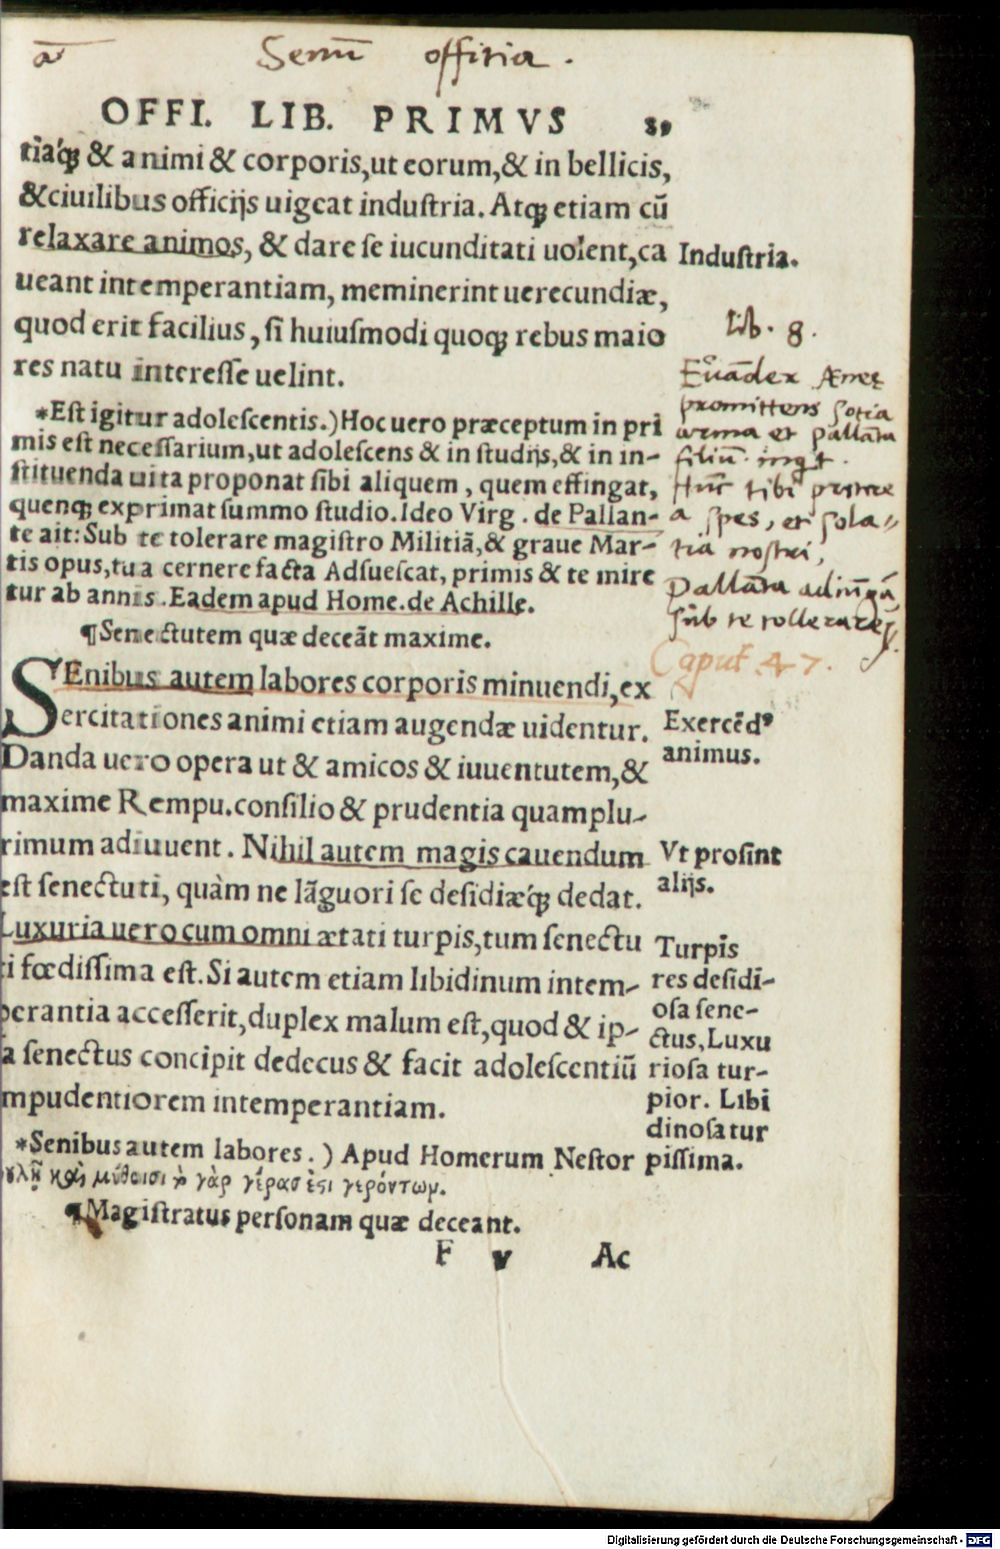 Senū offitia.
OFFI. LIB. PRIMVS 89
tiaq́ꝫ & animi & corporis,ut eorum,& in bellicis,
& ciuilibus officijs uigeat industria. Atqꝫ etiam cū
relaxare animos, & dare se iucunditati uolent,ca
Industria.
ueant intemperantiam, meminerint uerecundiæ,
quod erit facilius, si huiusmodi quoqꝫ rebus maio
res natu interesse uelint.
Lib. 8.
promittens sotia
arma et pallāta
filiū
spes, et sola
tia nostri,
pallāta
sub te tollerare
*Est igitur adolescentis.) Hoc uero præceptum in pri
mis est necessarium,ut adolescens & in studijs,& in in-
stituenda uita proponat sibi aliquem, quem effingat,
quenqꝫ exprimat summo studio. Ideo Virg. de Pallan-
te ait: Sub te tolerare magistro Militiā,& graue Mar-
tis opus,tua cernere facta Adsuescat, primis & te mire
tur ab annis. Eadem apud Home. de Achille.
¶Senectutem quæ deceāt maxime.
Caput 47.
SEnibus autem labores corporis minuendi,ex
ercitationes animi etiam augendæ uidentur.
Exercēdꝰ
animus.
Danda uero opera ut & amicos & iuuentutem,&
maxime Rempu.consilio & prudentia quamplu-
rimum adiuuent. Nihil autem magis cauendum
est senectuti, quàm ne lāguori se desidiæq́ꝫ dedat.
Vt prosint
alijs.
Luxuria uero cum omni ætati turpis,tum senectu
ti fœdissima est. Si autem etiam libidinum intem-
perantia accesserit,duplex malum est,quod & ip-
sa senectus concipit dedecus & facit adolescentiū
impudentiorem intemperantiam.
Turpis
res desidi-
osa sene-
ctus,Luxu
riosa tur-
pior. Libi
dinosa tur
pissima.
*Senibus autem labores.) Apud Homerum Nestor
βουλῇ καὶ μύθοισι τὸ γὰρ γέρας ἐστὶ γερόντωμ.
¶Magistratus personam quæ deceant.
F v Ac
Digitalisierung gefördert durch die Deutsche Forschungsgemeinschaft - DFG